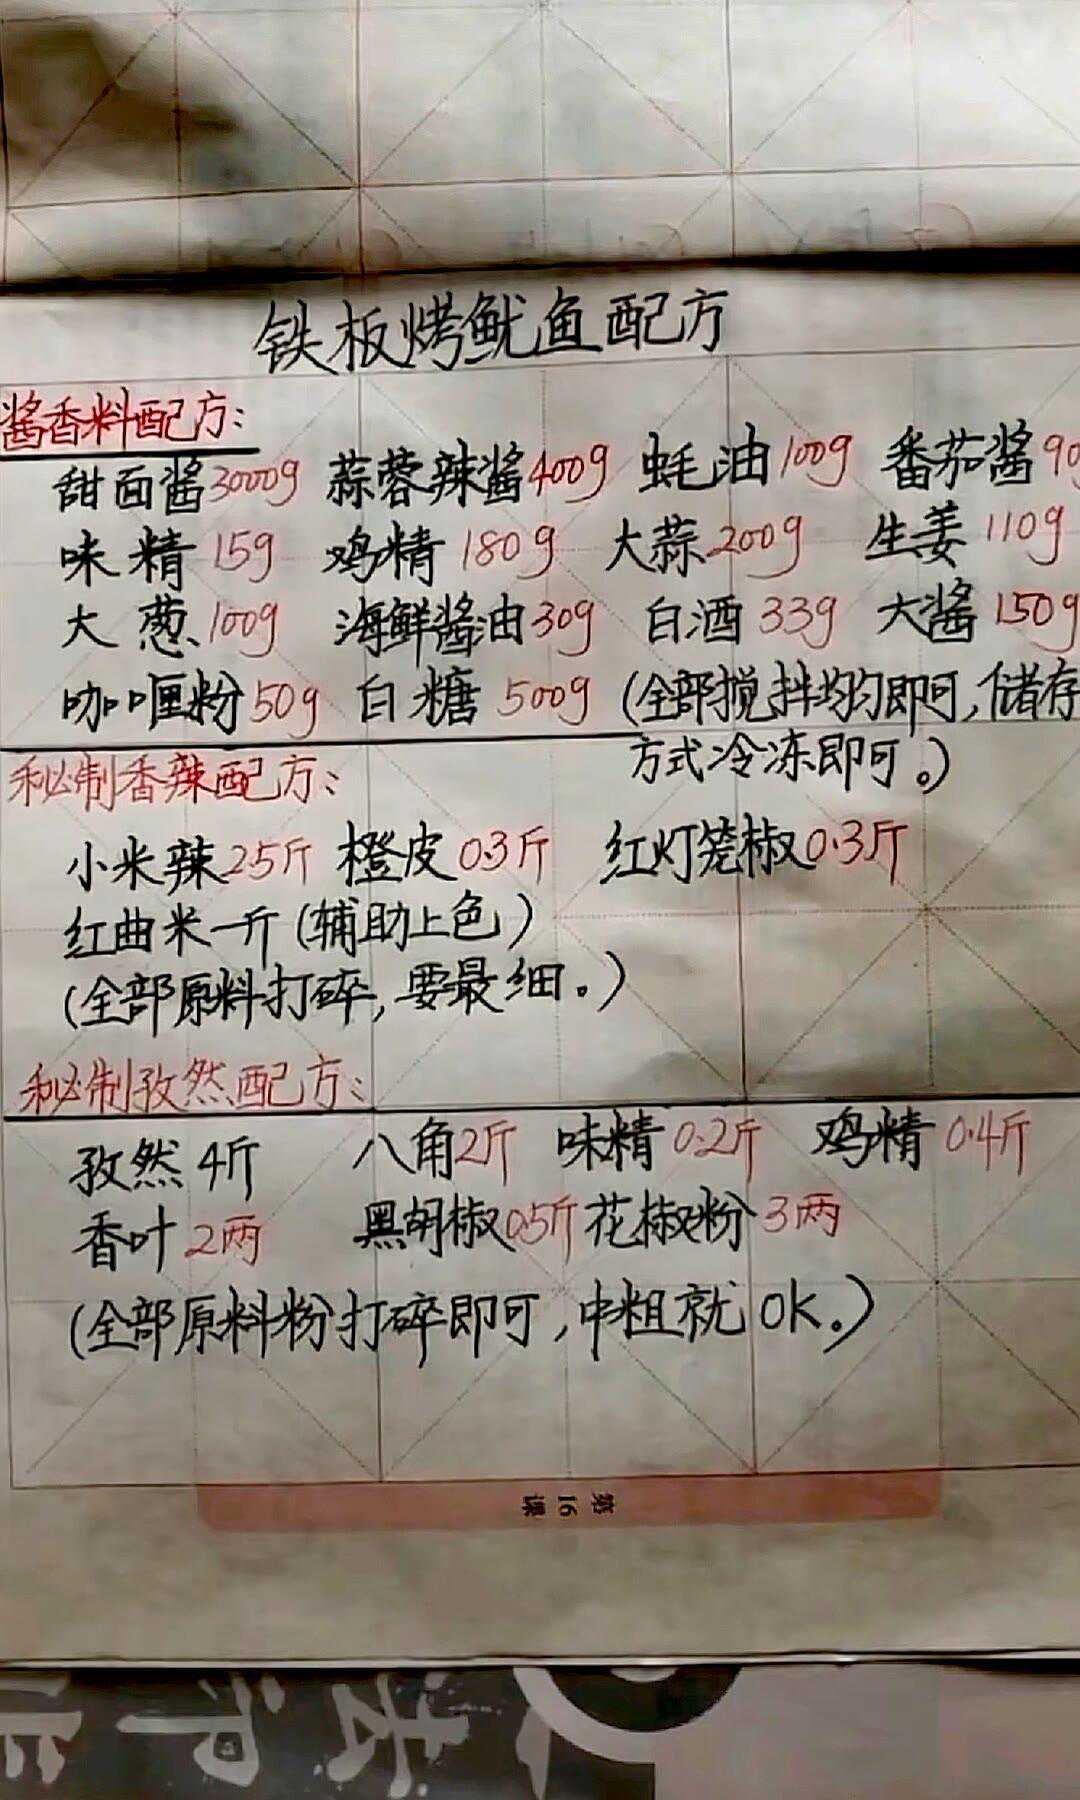 铁板烤鱿鱼配方
酱香料配方:
甜面酱3000g 蒜蓉辣酱400g 蚝油100g 番茄酱90
味精15g 鸡精180g 大蒜200g 生姜110g
大葱100g 海鲜酱油30g 白酒33g 大酱150g
咖喱粉50g 白糖500g (全部搅拌均匀即可,储存
方式冷冻即可。)
秘制香辣配方:
小米辣25斤 橙皮0.3斤 红灯笼椒0.3斤
红曲米一斤(辅助上色)
(全部原料打碎,要最细。)
秘制孜然配方:
孜然4斤 八角2斤 味精0.2斤 鸡精0.4斤
香叶2两 黑胡椒0.5斤 花椒粉3两
(全部原料粉打碎即可,中粗就OK。)
第16课